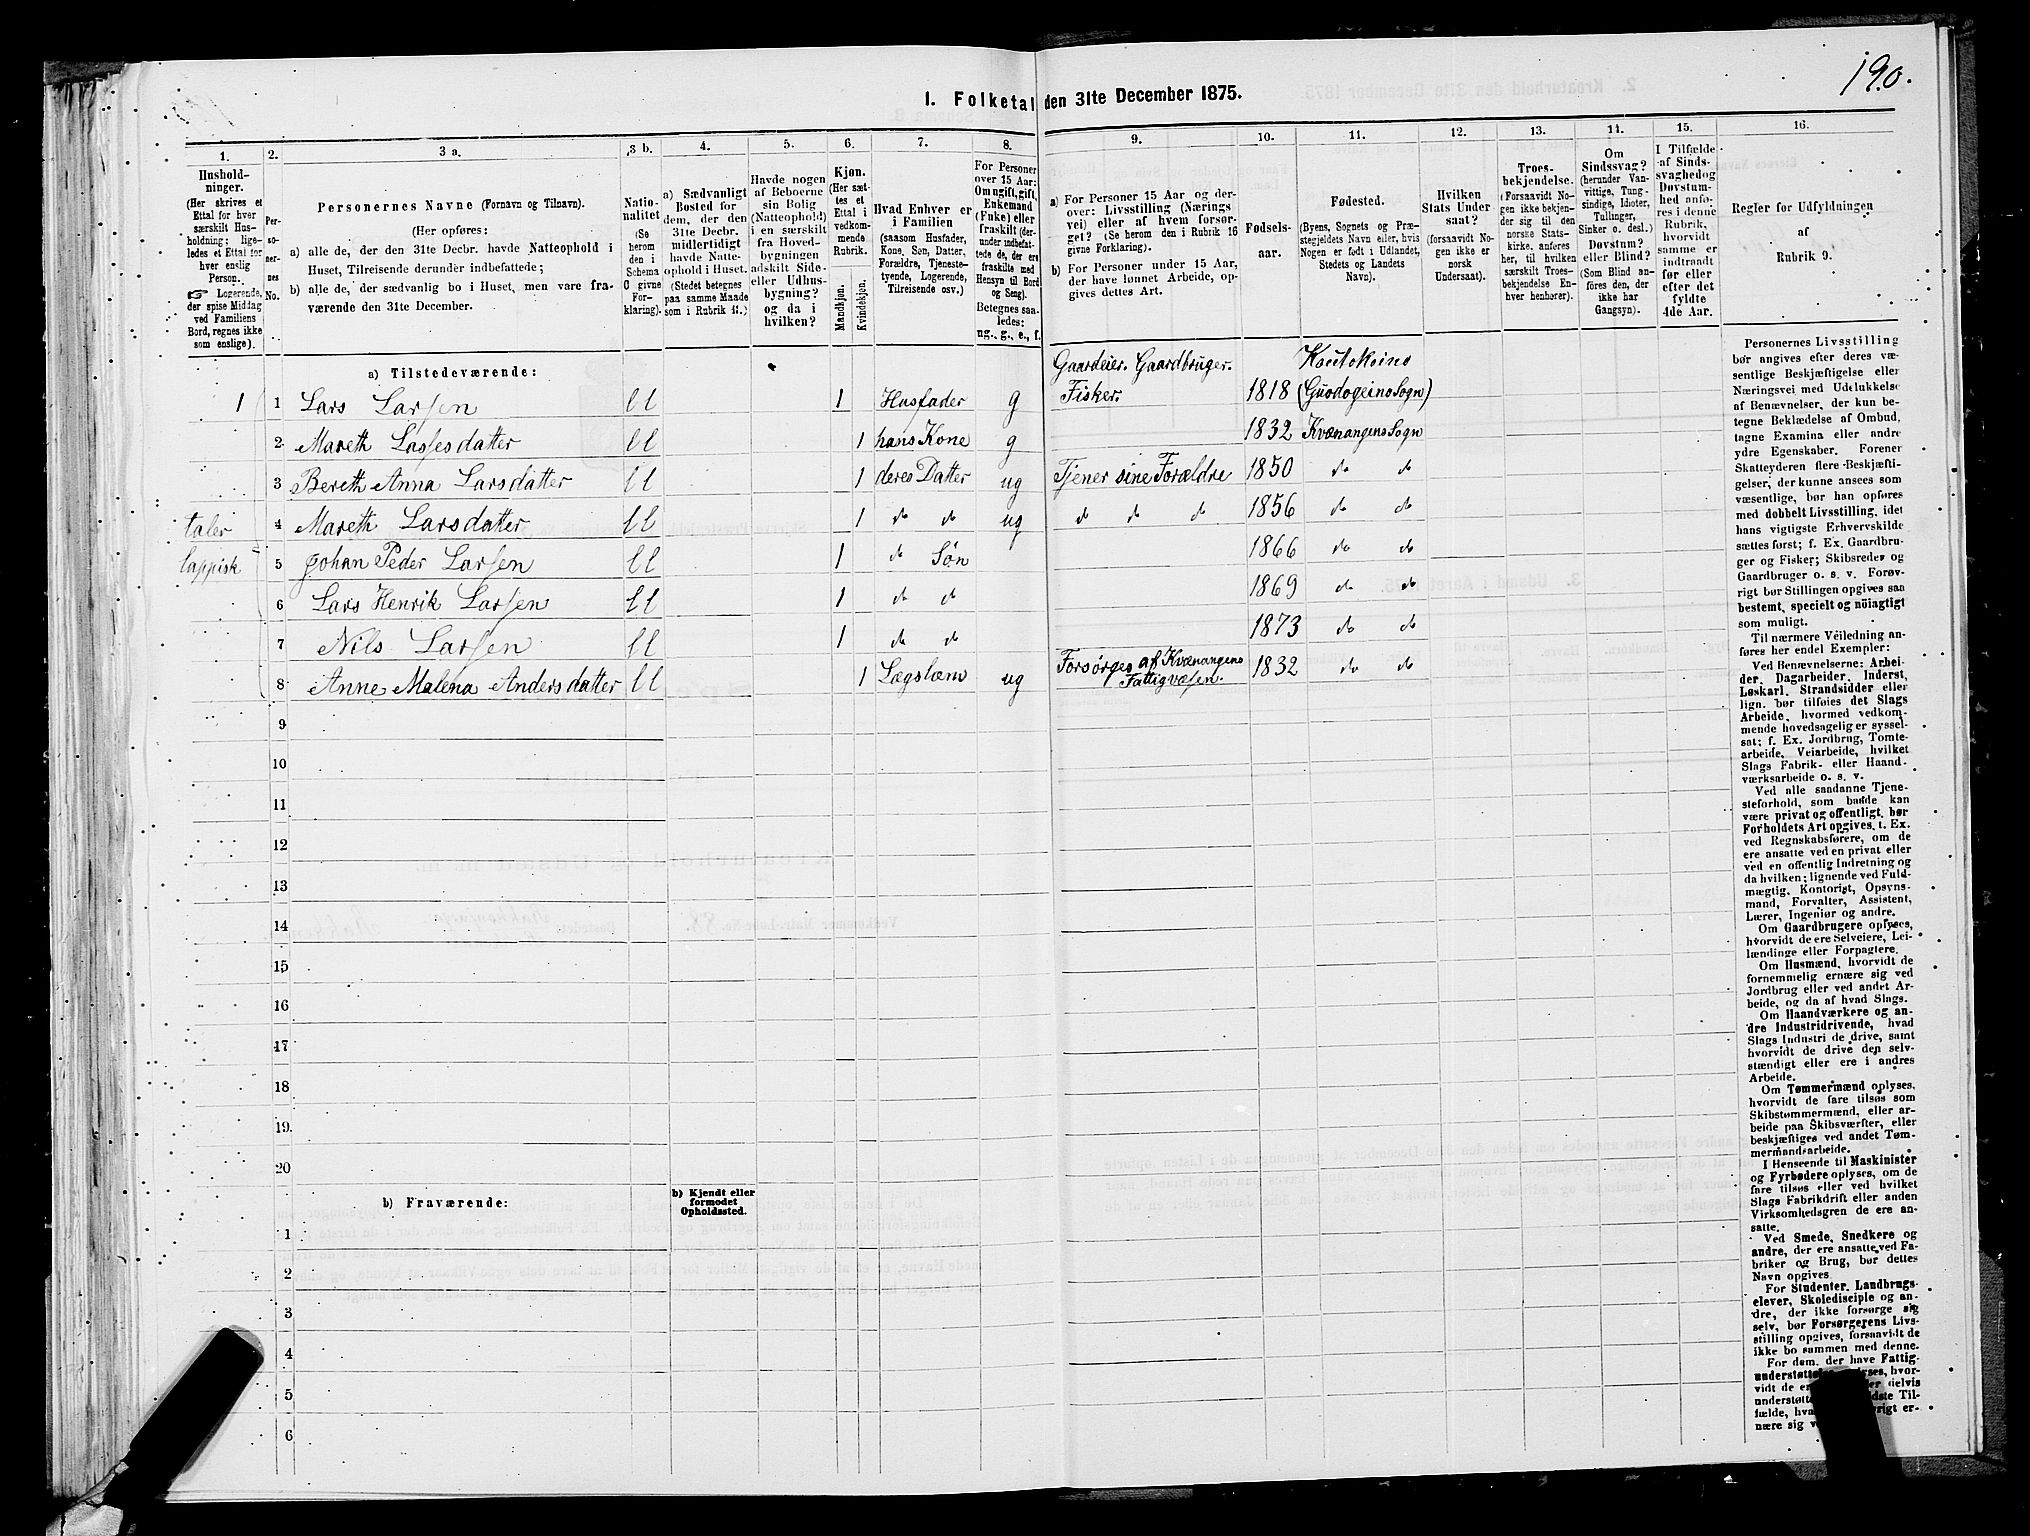 190.
1. Folketal den 31te December 1875.
1.
Husholdninger.
(Her skrives et
Ettal for hver
særskilt Husholdning; ligeledes et Ettal for
hver enslig
Person.
☞ Logerende,
der spise Middag
ved Familiens
Bord, regnes ikke
som enslige).
2.
Personernes
No.
3 a.
Personernes Navne (Fornavn og Tilnavn).
(Her opføres:
a) alle de, der den 31te Decbr. havde Natteophold i
Huset, Tilreisende derunder indbefattede;
b) alle de, der sædvanlig bo i Huset, men vare fraværende den 31te December.
3 b.
Nationalitet
(Se
herom
den i
Schema
C givne
Forklaring).
4.
a) Sædvanligt
Bosted for
dem, der den
31te Decbr.
midlertidigt
havde Natteophold i Huset.
(Stedet betegnes
paa samme Maade
som i Rubrik 11.)
5.
Havde nogen
af Beboerne
sin Bolig
(Natteophold)
i en særskilt
fra Hovedbygningen
adskilt Side-
eller Udhusbygning?
og da i
hvilken?
6.
Kjøn.
(Her sættes et
Ettal i
vedkommende
Rubrik.
Mandkjøn.
Kvindekjøn.
7.
Hvad Enhver er
i Familien
(saasom Husfader,
Kone, Søn, Datter,
Forældre, Tjenestetyende, Logerende,
Tilreisende osv.)
8.
For Personer
over 15 Aar:
Om ugift, gift,
Enkemand
(Fuke) eller
fraskilt (derunder indbefattede de, der ere
fraskilte med
Hensyn til Bord
og Seng).
Betegnes saaledes:
ug., g., e., f.
9.
a) For Personer 15 Aar og derover: Livsstilling (Næringsvei) eller af hvem forsørget? (Se herom de i Rubrik 16
givne Forklaring).
b) For Personer under 15 Aar,
der have lønnet Arbeide, opgives dettes Art.
10.
Fødselsaar.
11.
Fødested.
(Byens, Sognets og Præstegjeldets Navn eller, hvis
Nogen er født i Udlandet,
Stedets og Landets
Navn).
12.
Hvilken
Stats Undersaat?
(forsaavidt Nogen ikke er
norsk
Undersaat).
13.
Troesbekjendelse.
(Forsaavidt Nogen ikke bekjender sig til den
norske Statskirke, anføres
her, til hvilken
særskilt Troesbekjendelse Enhver henhører).
14.
Om
Sindssvag?
(herunder Vanvittige, Tungsindige, Idioter,
Tullinger,
Sinker o. desl.)
Døvstum?
eller Blind?
(Som Blind anføres den, der
ikke har
Gangsyn).
15.
I Tilfælde
af Sindssvaghed og
Døvstumhed anføres i denne
Rubrik,
hvorvidt
samme er
indtraadt
før eller
efter det
fyldte
4de Aar.
16.
Regler for Udfyldningen
af
Rubrik 9.
a) Tilstedeværende:
1 1 Lars Larsen ll 1 Husfader g Gaardeier. Gaardbruger. Fisker. 1818 Koutokeino (Guodogeino Sogn)
2 Mareth Lassesdatter ll 1 hans Kone g 1832 Kvænangens Sogn
3 Bereth Anna Larsdatter ll 1 deres Datter ug Tjener sine Forældre 1850 do do
taler 4 Mareth Larsdatter ll 1 do do ug do do do 1856 do do
lappisk 5 Johan Peder Larsen ll 1 do Søn 1866 do do
6 Lars Henrik Larsen ll 1 do do 1869 do do
7 Nils Larsen ll 1 do do 1873 do do
8 Anne Malena Andersdatter ll 1 Lægslem ug Forsørges af Kvænangens Fattigvæsen. 1832 do do
9
10
11
12
13
14
15
16
17
18
19
20
b) Fraværende:
b) Kjendt eller
formodet
Opholdssted.
1
2
3
4
5
6
Personernes Livsstilling
bør angives efter deres væsentlige Beskjæftigelse eller
Næringsvei med Udelukkelse
af Benævnelser, der kun betegne Beklædelse af Ombud,
tagne Examina eller andre
ydre Egenskaber. Forener
Skatteyderen flere Beskjæftigelser, der kunne ansees som
væsentlige, bør han opføres
med dobbelt Livsstilling, idet
hans vigtigste Erhvervskilde
sættes først; f. Ex. Gaardbruger og Fisker; Skibsreder og
Gaardbruger o. s. v. Forøvrigt bør Stillingen opgives saa
bestemt, specielt og nøiagtigt
som muligt.
Til nærmere Veiledning anføres her endel Exempler:
Ved Benævnelserne: Arbeider, Dagarbeider, Inderst,
Løskarl, Strandsidder eller
lign. bør tilføies det Slags
Arbeide, hvormed vedkommende hovedsagelig er sysselsat; f. Ex. Jordbrug, Tomtearbeide, Veiarbeide, hvilket
Slags Fabrik- eller Haandværksarbeide o. s. v.
Ved alle saadanne Tjenesteforhold, som baade kan
være privat og offentligt, bør
Forholdets Art opgives, t. Ex.
ved Regnskabsførere, om de
ere ansatte ved en privat eller
ved en offentlig Indretning og
da hvilken; lignende ved Fuldmægtig, Kontorist, Opsynsmand, Forvalter, Assistent,
Lærer, Ingeniør og andre.
Om Gaardbrugere oplyses,
hvorvidt de ere Selveiere, Leilændinge eller Forpagtere.
Om Husmænd, hvorvidt de
fornemmelig ernære sig ved
Jordbrug eller ved andet Arbeide, og da af hvad Slags.
Om Haandværkere og andre Industridrivende, hvad
Slags Industri de drive, samt
hvorvidt de drive den selvstændigt eller ere i andres
Arbeide.
Om Tømmermænd oplyses,
hvorvidt de fare tilsøs som
Skibstømmermænd, eller arbeide paa Skibsværfter, eller
beskjæftiges ved andet Tømmermandsarbeide.
I Henseende til Maskinister
og Fyrbødere oplyses, om de
fare tilsøs eller ved hvilket
Slags Fabrikdrift eller anden
Virksomhedsgren de ere ansatte.
Ved Smede, Snedkere og
andre, der ere ansatte ved Fabriker og Brug, bør dettes
Navn opgives.
For Studenter, Landbrugselever, Skoledisciple og andre, der ikke forsørge sig
selv, bør Forsørgerens Livsstilling opgives, forsaavidt de
ikke bo sammen med denne.
For dem, der have Fattigunderstøttelse, oplyses, hvorvidt de